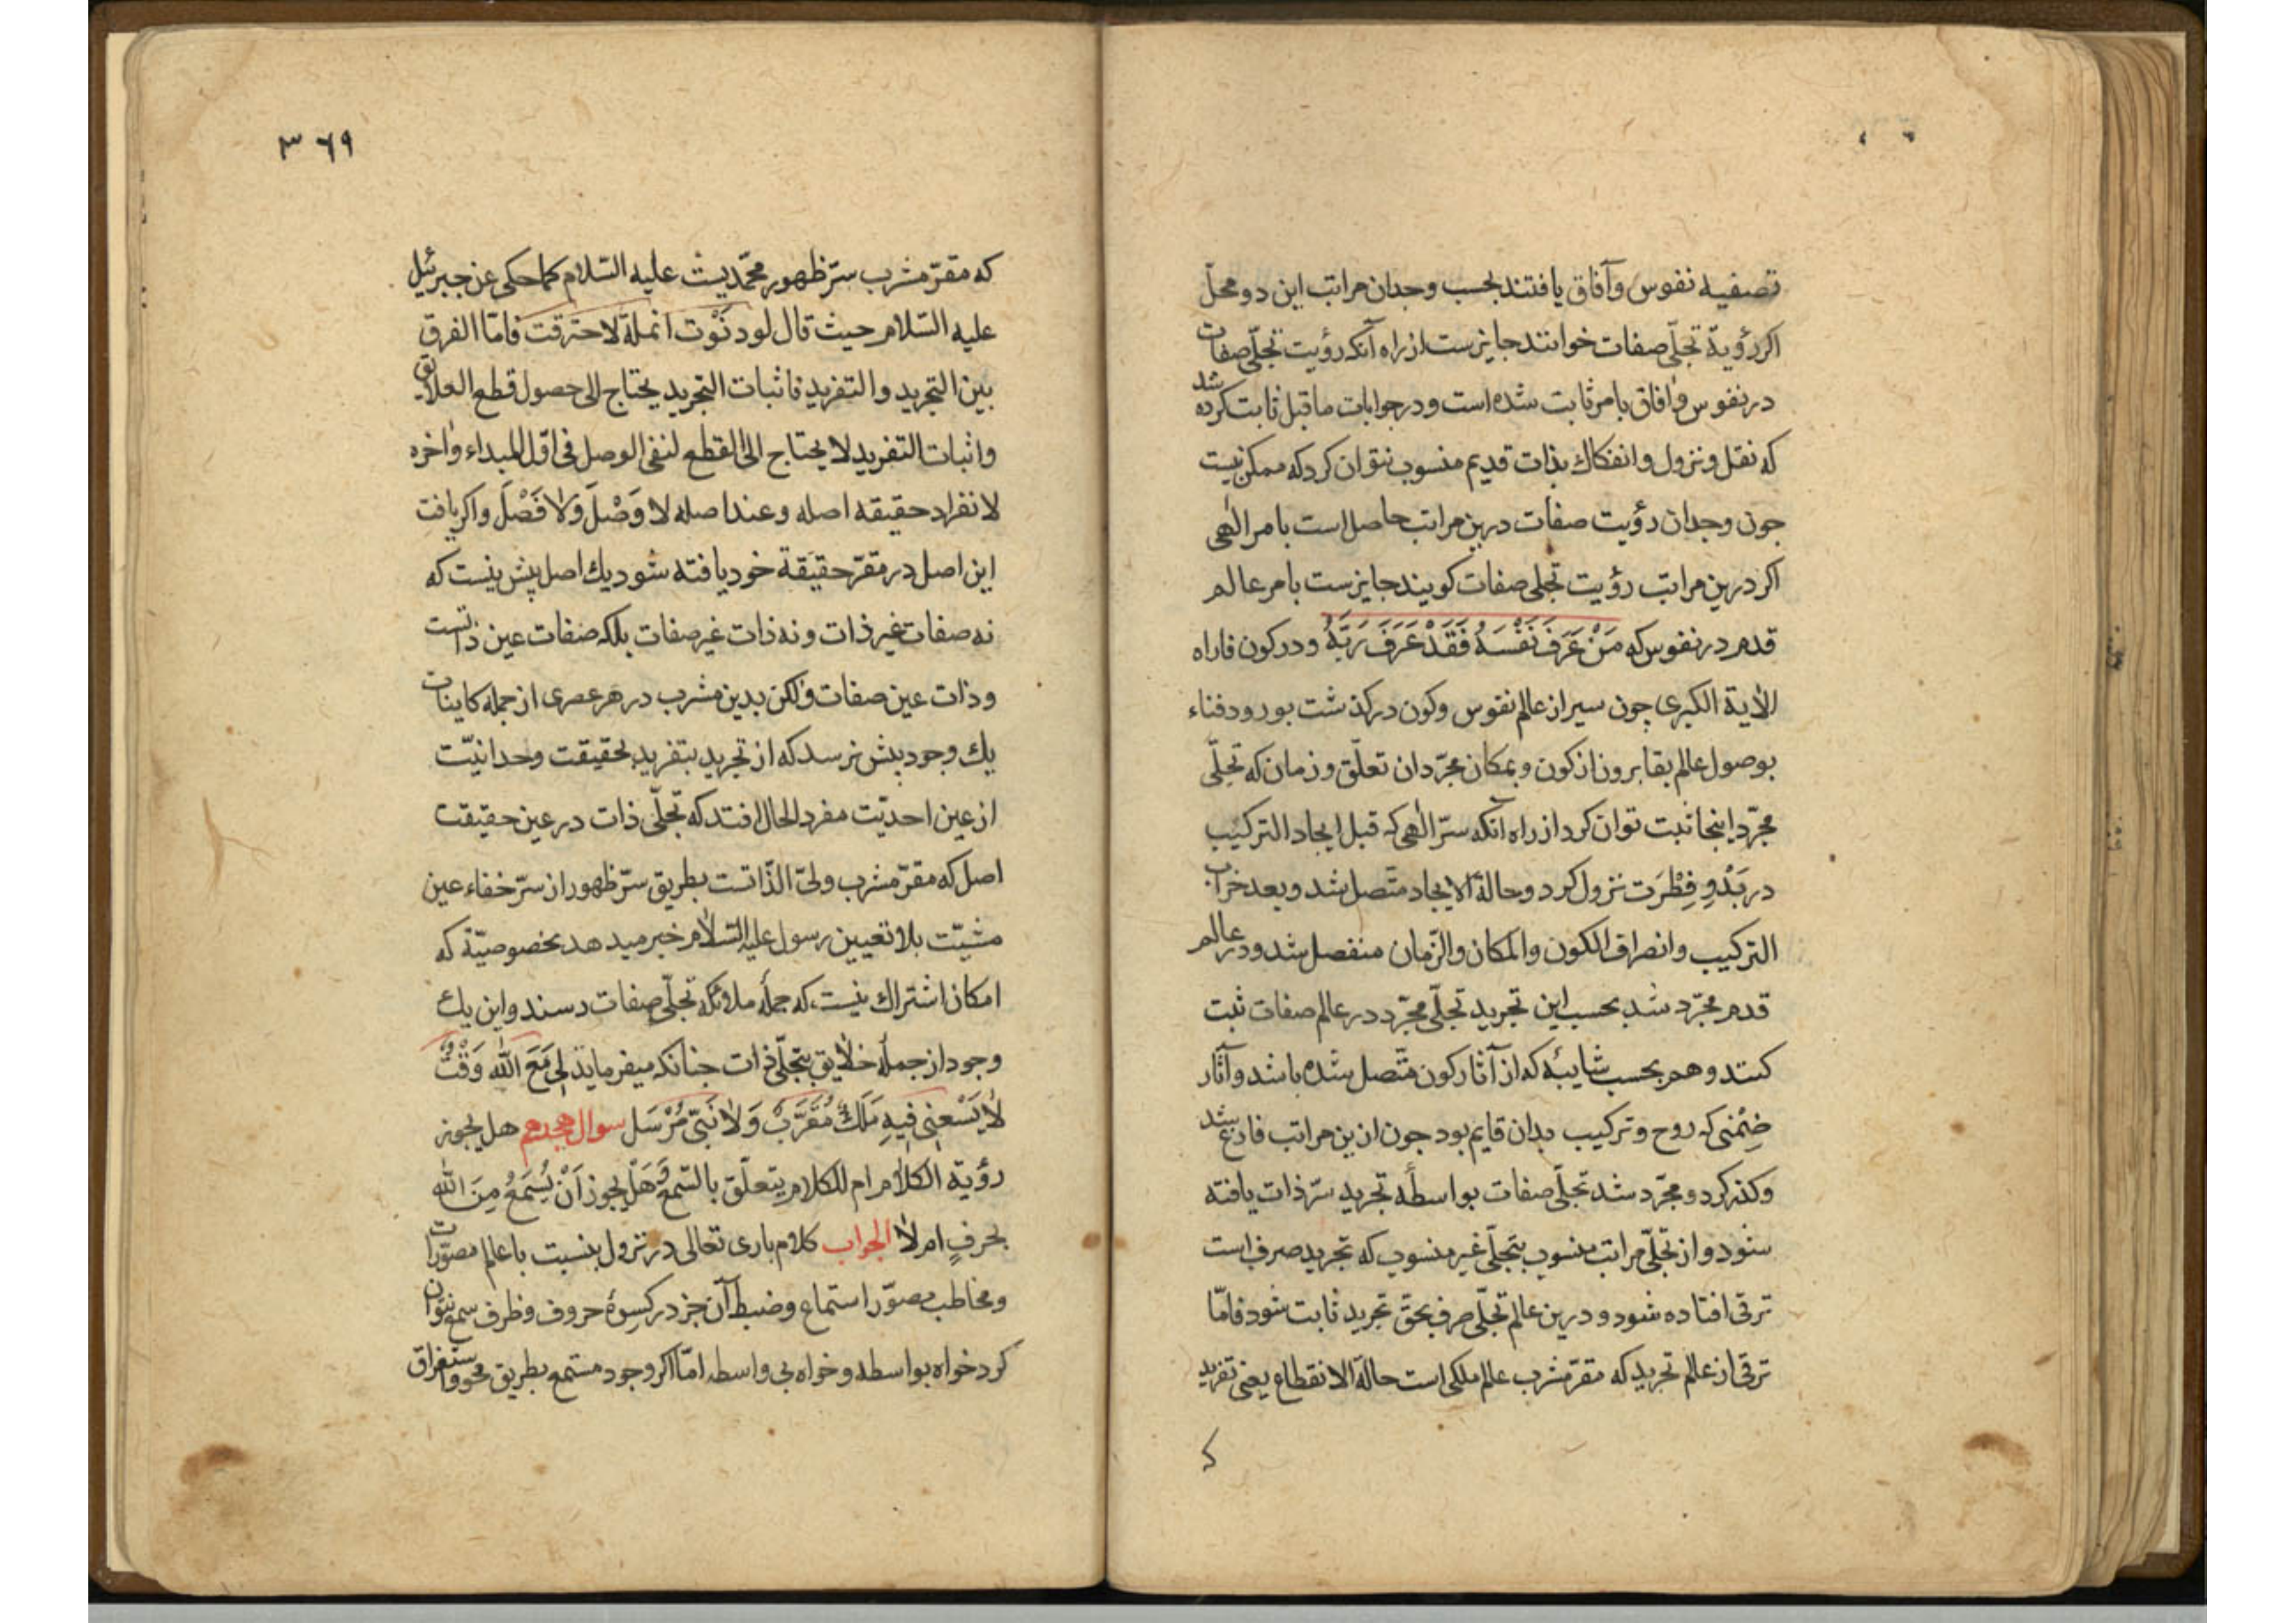 تصفیه نفوس وآفاق یافتند بحسب وجدان مراتب این دو محلّ
اکر رؤیة تجلّی صفات خوانند جایزست از راه آنکه رؤیت تجلّی صفات
در نفوس وآفاق بامر ثابت شده است ودر جوابات ماقبل ثابت کرده شد
که نقل ونزول وانفکاك بذات قدیم منسوب نتوان کرد که ممکن نیست
جون وجدان رؤیت صفات درین مراتب حاصل است بامر الٰهی
اکر درین مراتب رؤیت تجلی صفات کویند جایزست بامر عالم
قدم در نفوس که مَنْ عَرَفَ نَفْسَهُ فَقَدْ عَرَفَ رَبَّهُ ودر کون فاراه
الاٰیة الکبری چون سیر از عالم نفوس وکون درکذشت بورود فناء
بوصول عالم بقا برون از کون وبمکان مجرّد ان تعلّق وزمان که تجلّی
مجرّد اینجا ثبت توان کرد از راه آنکه سرّ الٰهی که قبل ایجاد الترکیب
در بَدْوِ فِطْرَت نزول کرد وحالة الایجاد متّصل شد وبعد خراب
الترکیب وانصراف الکون والمکان والزّمان منفصل شد ودر عالم
قدم مجرّد شد بحسب این تجرید تجلّی مجرّد در عالم صفات ثبت
کنند وهم بحسب شایبهٔ که از آثار کون متّصل شده باشد وآثار
ضِمْنی که روح وترکیب بدان قایم بود جون ازین مراتب فارغ شد
وکذر کرد ومجرّد شد تجلّی صفات بواسطهٔ تجرید سرّ ذات یافته
شود واز تجلّی مراتب منسوب بتجلّی غیر منسوب که تجرید صرف است
ترقی افتاده شود ودرین عالم تجلّی صرف بحقّ تجرید ثابت شود فامّا
ترقی از عالم تجرید که مقرّ مشرب عالم ملکی است حالة الانقطاع یعنی تفرید
که
۳۶۹
که مقرّ مشرب سرّ ظهور محمّدیست علیه السّلام کما حکی عن جبرئیل
علیه السّلام حیث قال لو دنَوْت انملة لاحترقت فامّا الفرق
بین التجرید والتفرید فاثبات التجرید یحتاج الی حصول قطع العلایق
واثبات التفرید لا یحتاج الی القطع لنفی الوصل فی اوّل المبداء واٰخره
لانفراد حقیقه اصله وعند اصله لا وَصْلَ وَلاٰ فَصْلَ واکر یافت
این اصل در مقرّ حقیقة خود یافته شود یك اصل بیش نیست که
نه صفات غیر ذات ونه ذات غیر صفات بلکه صفات عین ذاتست
وذات عین صفات ولٰکن بدین مشرب در هر عصری از جمله کاینات
یك وجود بیش نرسد که از تجرید بتفرید بحقیقت وحدانیّت
از عین احدیّت مفرد الحال افتد که تجلّی ذات در عین حقیقت
اصل که مقرّ مشرب ولیّ الذّاتست بطریق سرّ ظهور از سرّ خفاء عین
مشیّت بلا تعیین رسول علیه السّلاٰم خبر میدهد بخصوصیّة که
امکان اشتراك نیست که جملهٔ ملائکه تجلّی صفات رسند واین یك
وجود از جملهٔ خلاٰیق بتجلّی ذات جنانکه میفرماید لِی مَعَ اللّٰه وَقْتٌ
لاٰ یَسْعنی فِیهِ مَلَكٌ مُقَرَّبٌ وَلاٰ نَبیّ مُرْسَل سوال هجدهم هل یجوز
رؤیة الکلاٰم ام للکلام یتعلّق بالسّمع وَهَلْ یجوز اَنْ یُسْمَعُ مِنَ اللّٰه
بحرفٍ ام لاٰ الجواب کلام باری تعالی در نزول بنسبت با عالم مصوّرات
ومخاطب مصوّر استماع وضبط آن جز در کسوهٔ حروف وظرف سمع نتوان
کرد خواه بواسطه وخواه بی واسطه امّا اکر وجود مستمع بطریق محو واستغراق